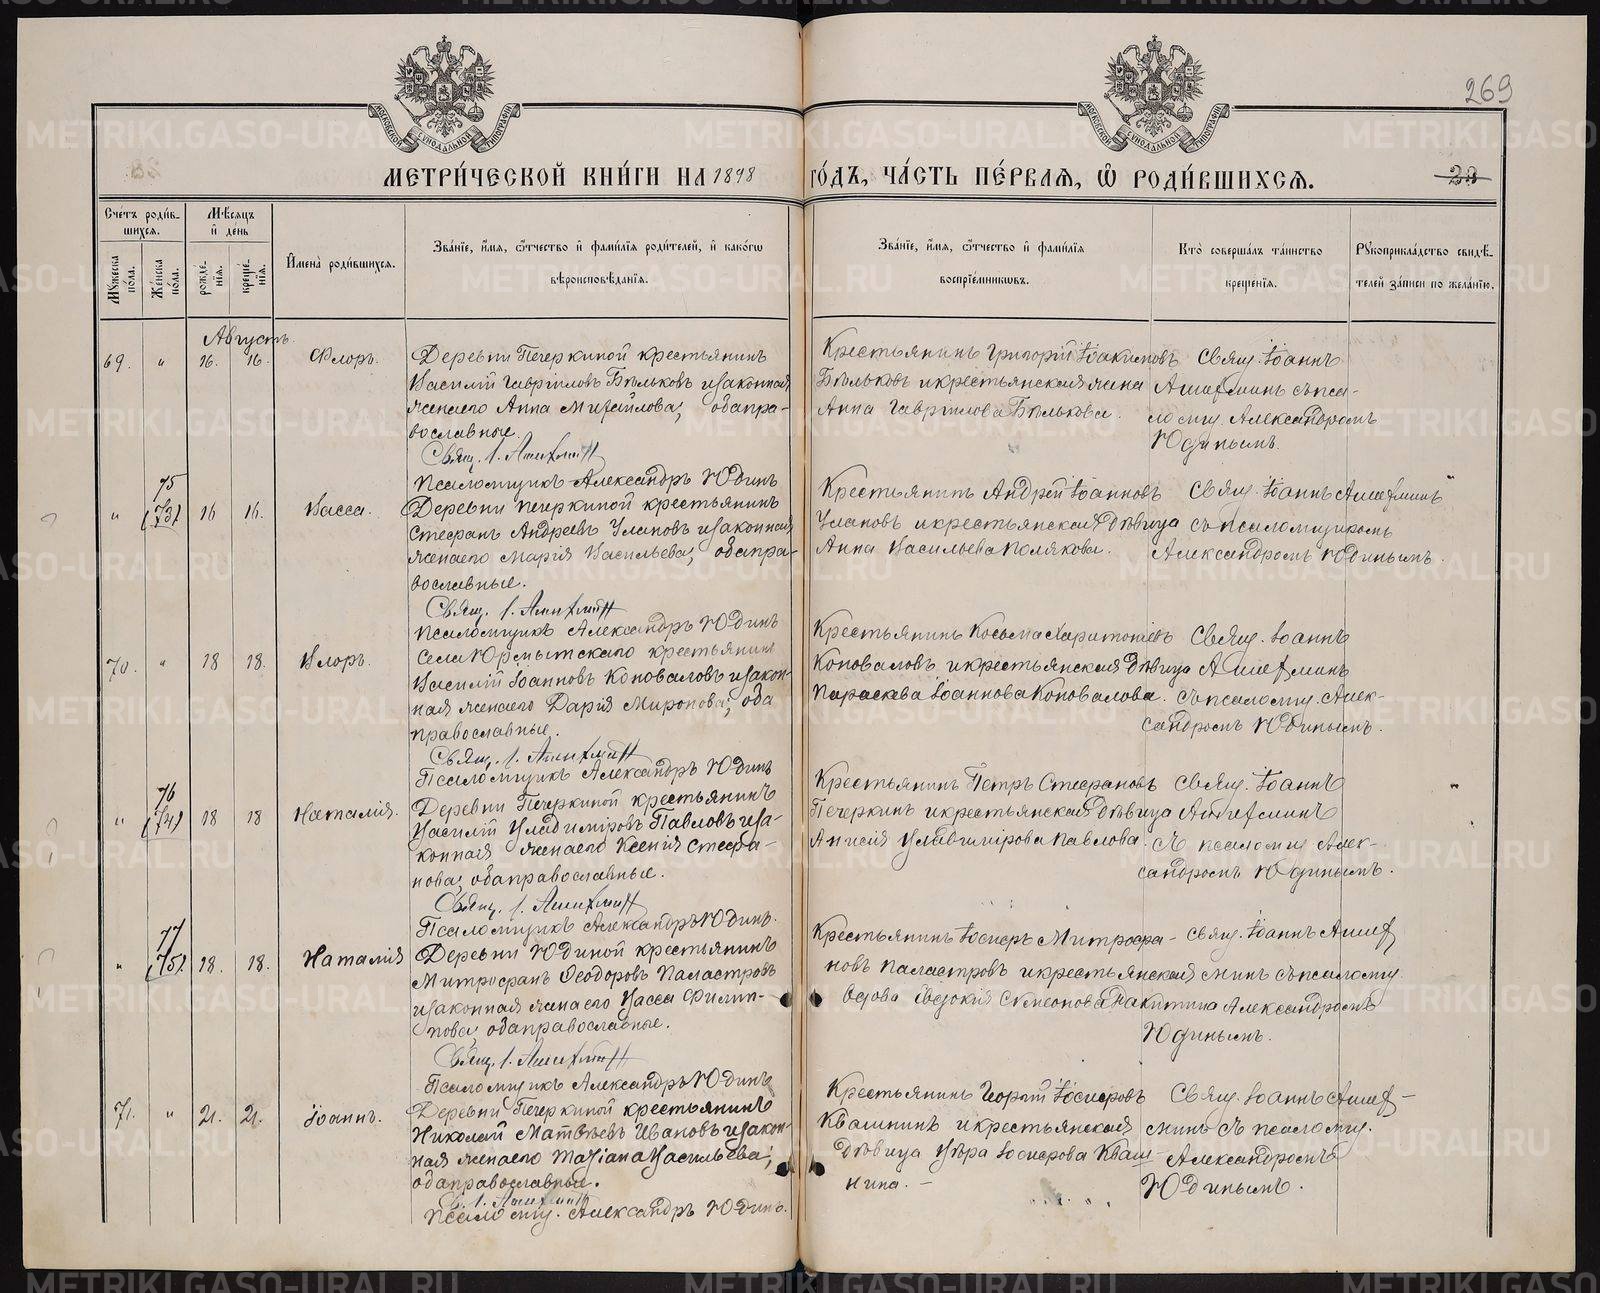 269
МЕТРИ́ЧЕСКОЙ КНИ́ГИ НА 1898 ГО́ДЪ, ЧА́СТЬ ПЕ́РВАЯ, Ѽ РОДИ́ВШИХСЯ.
28
Сче́тъ роди́в-
шихся.
Мѣ́сяцъ
и҆ день
И҆мена̀ роди́вшихся.
Зва́нїе, и҆́мя, ѻ҆́тчество и҆ фами́лїя роди́телей, и҆ како́гѡ
вѣроисповѣ́данїя.
Зва́нїе, и҆́мя, ѻ҆́тчество и҆ фами́лїя
воспрїе́мникѡвъ.
Кто̀ соверша́лъ та́инство
креще́нїя.
Рꙋкоприкла́дство свидѣ́-
телей за́писи по жела́нїю.
Мꙋ́жеска по́ла.
Же́нска по́ла.
рожде́-
нїя.
креще́-
нїя.
Августъ.
69. " 16. 16. Флоръ.
Деревни Печеркиной крестьянинъ
Василій Гавріиловъ Бѣльковъ и законная
жена его Анна Михайлова; оба пра-
вославные.
Свящ. І.
Псаломщикъ Александръ Юдинъ
Крестьянинъ Григорій Іоакимовъ
Бѣльковъ и крестьянская жена
Анна Гавріилова Бѣлькова.
Свящ. Іоаннъ
съ пса-
ломщ. Александромъ
Юдинымъ.
" 75 (73) 16 16. Васса.
Деревни Печеркиной крестьянинъ
Стефанъ Андреевъ Улановъ и законная
жена его Марія Васильева; оба пра-
вославные.
Свящ. І.
Псаломщикъ Александръ Юдинъ
Крестьянинъ Андрей Іоанновъ
Улановъ и крестьянская дѣвица
Анна Васильева Полякова.
Свящ. Іоаннъ
съ псаломщикомъ
Александромъ Юдинымъ.
70. " 18 18. Флоръ.
Села Юрмытскаго крестьянинъ
Василій Іоанновъ Коноваловъ и закон-
ная жена его Дарія Миронова; оба
православные.
Свящ. І.
Псаломщикъ Александръ Юдинъ
Крестьянинъ Косьма Харитоновъ
Коноваловъ и крестьянская дѣвица
Параскева Іоаннова Коновалова.
Свящ. Іоаннъ
съ псаломщ. Алек-
сандромъ Юдинымъ.
" 76 (74) 18 18 Наталія.
Деревни Печеркиной крестьянинъ
Василій Владиміровъ Павловъ и за-
конная жена его Ксенія Стефа-
нова; оба православные.
Свящ. І.
Псаломщикъ Александръ Юдинъ.
Крестьянинъ Петръ Стефановъ
Печеркинъ и крестьянская дѣвица
Анисія Владимірова Павлова.
Свящ. Іоаннъ
съ псаломщ Алек-
сандромъ Юдинымъ.
" 77 (75). 18. 18. Наталія
Деревни Юдиной крестьянинъ
Митрофанъ Ѳеодоровъ Паластровъ
и законная жена его Васса Филип-
пова; оба православные.
Свящ. І.
Псаломщикъ Александръ Юдинъ
Крестьянинъ Іосифъ Митрофа-
новъ Паластровъ и крестьянская
вдова Евдокія Симеонова Накитина
Свящ. Іоаннъ
съ псаломщ.
Александромъ
Юдинымъ.
71. " 21. 21. Іоаннъ.
Деревни Печеркиной крестьянинъ
Николай Матвѣевъ Ивановъ и закон-
ная жена его Татіана Васильева;
оба православные.
Св. І.
Псаломщ. Александръ Юдинъ.
Крестьянинъ Георгій Іосифовъ
Квашнинъ и крестьянская
дѣвица Вѣра Іосифова Кваш-
нина. -
Свящ. Іоаннъ
съ псаломщ.
Александромъ
Юдинымъ.
METRIKI.GASO-URAL.RU